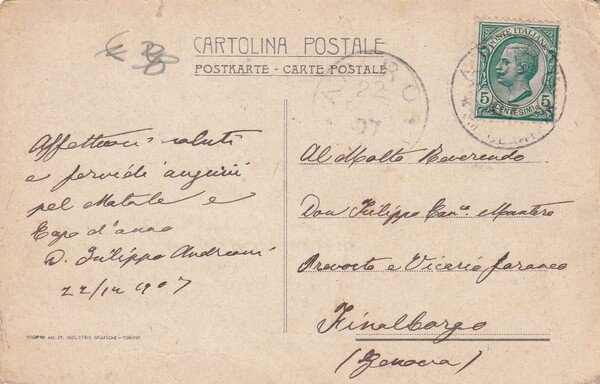 € 30
CARTOLINA POSTALE
POSTKARTE - CARTE POSTALE
POSTE ITALIANE
5 CENTESIMI 5
22
07
Affettuosi saluti
e fervidi augurii
pel Natale e
Capo d'anno
D. Filippo Andreoni
22/12 907
Al Molto Reverendo
Don Filippo Can.co Mantero
Prevosto e Vicario foraneo
Finalborgo
(Genova)
SOCIETÀ AN. IT. INDUSTRIE GRAFICHE - TORINO